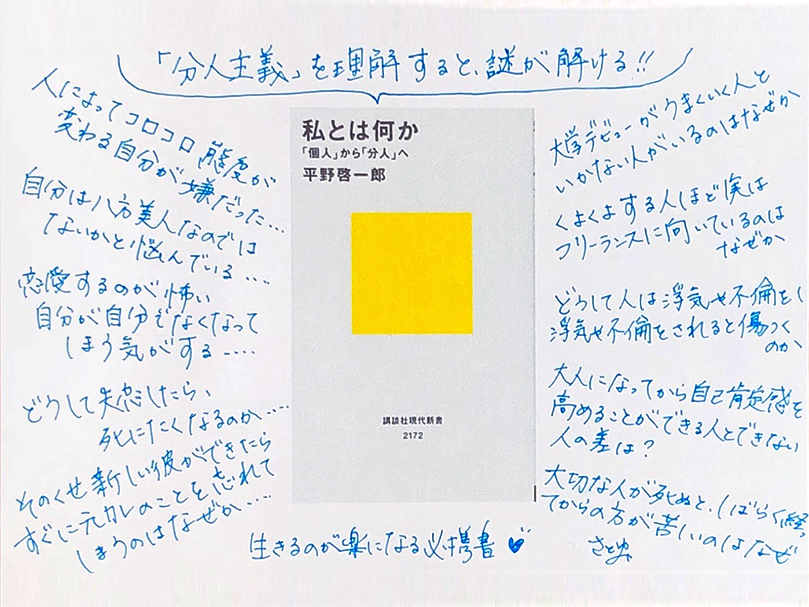 「分人主義」を理解すると、謎が解ける!!
人によってコロコロ態度が
変わる自分が嫌だった…
自分は八方美人なのでは
ないかと悩んでいる….
恋愛するのが怖い
自分が自分でなくなって
しまう気がする….
どうして失恋したら、
死にたくなるのか….
そのくせ新しい彼ができたら
すぐに元カレのことを忘れて
しまうのはなぜか….
私とは何か
「個人」から「分人」へ
平野啓一郎
講談社現代新書
2172
大学デビューがうまくいく人と
いかない人がいるのはなぜか
くよくよする人ほど実は
フリーランスに向いているのは
なぜか
どうして人は浮気や不倫をし
浮気や不倫をされると傷つく
のか
大人になってから自己肯定感を
高めることができる人とできない
人の差は?
大切な人が死ぬと、しばらく経っ
てからの方が苦しいのはなぜ
生きるのが楽になる必携書